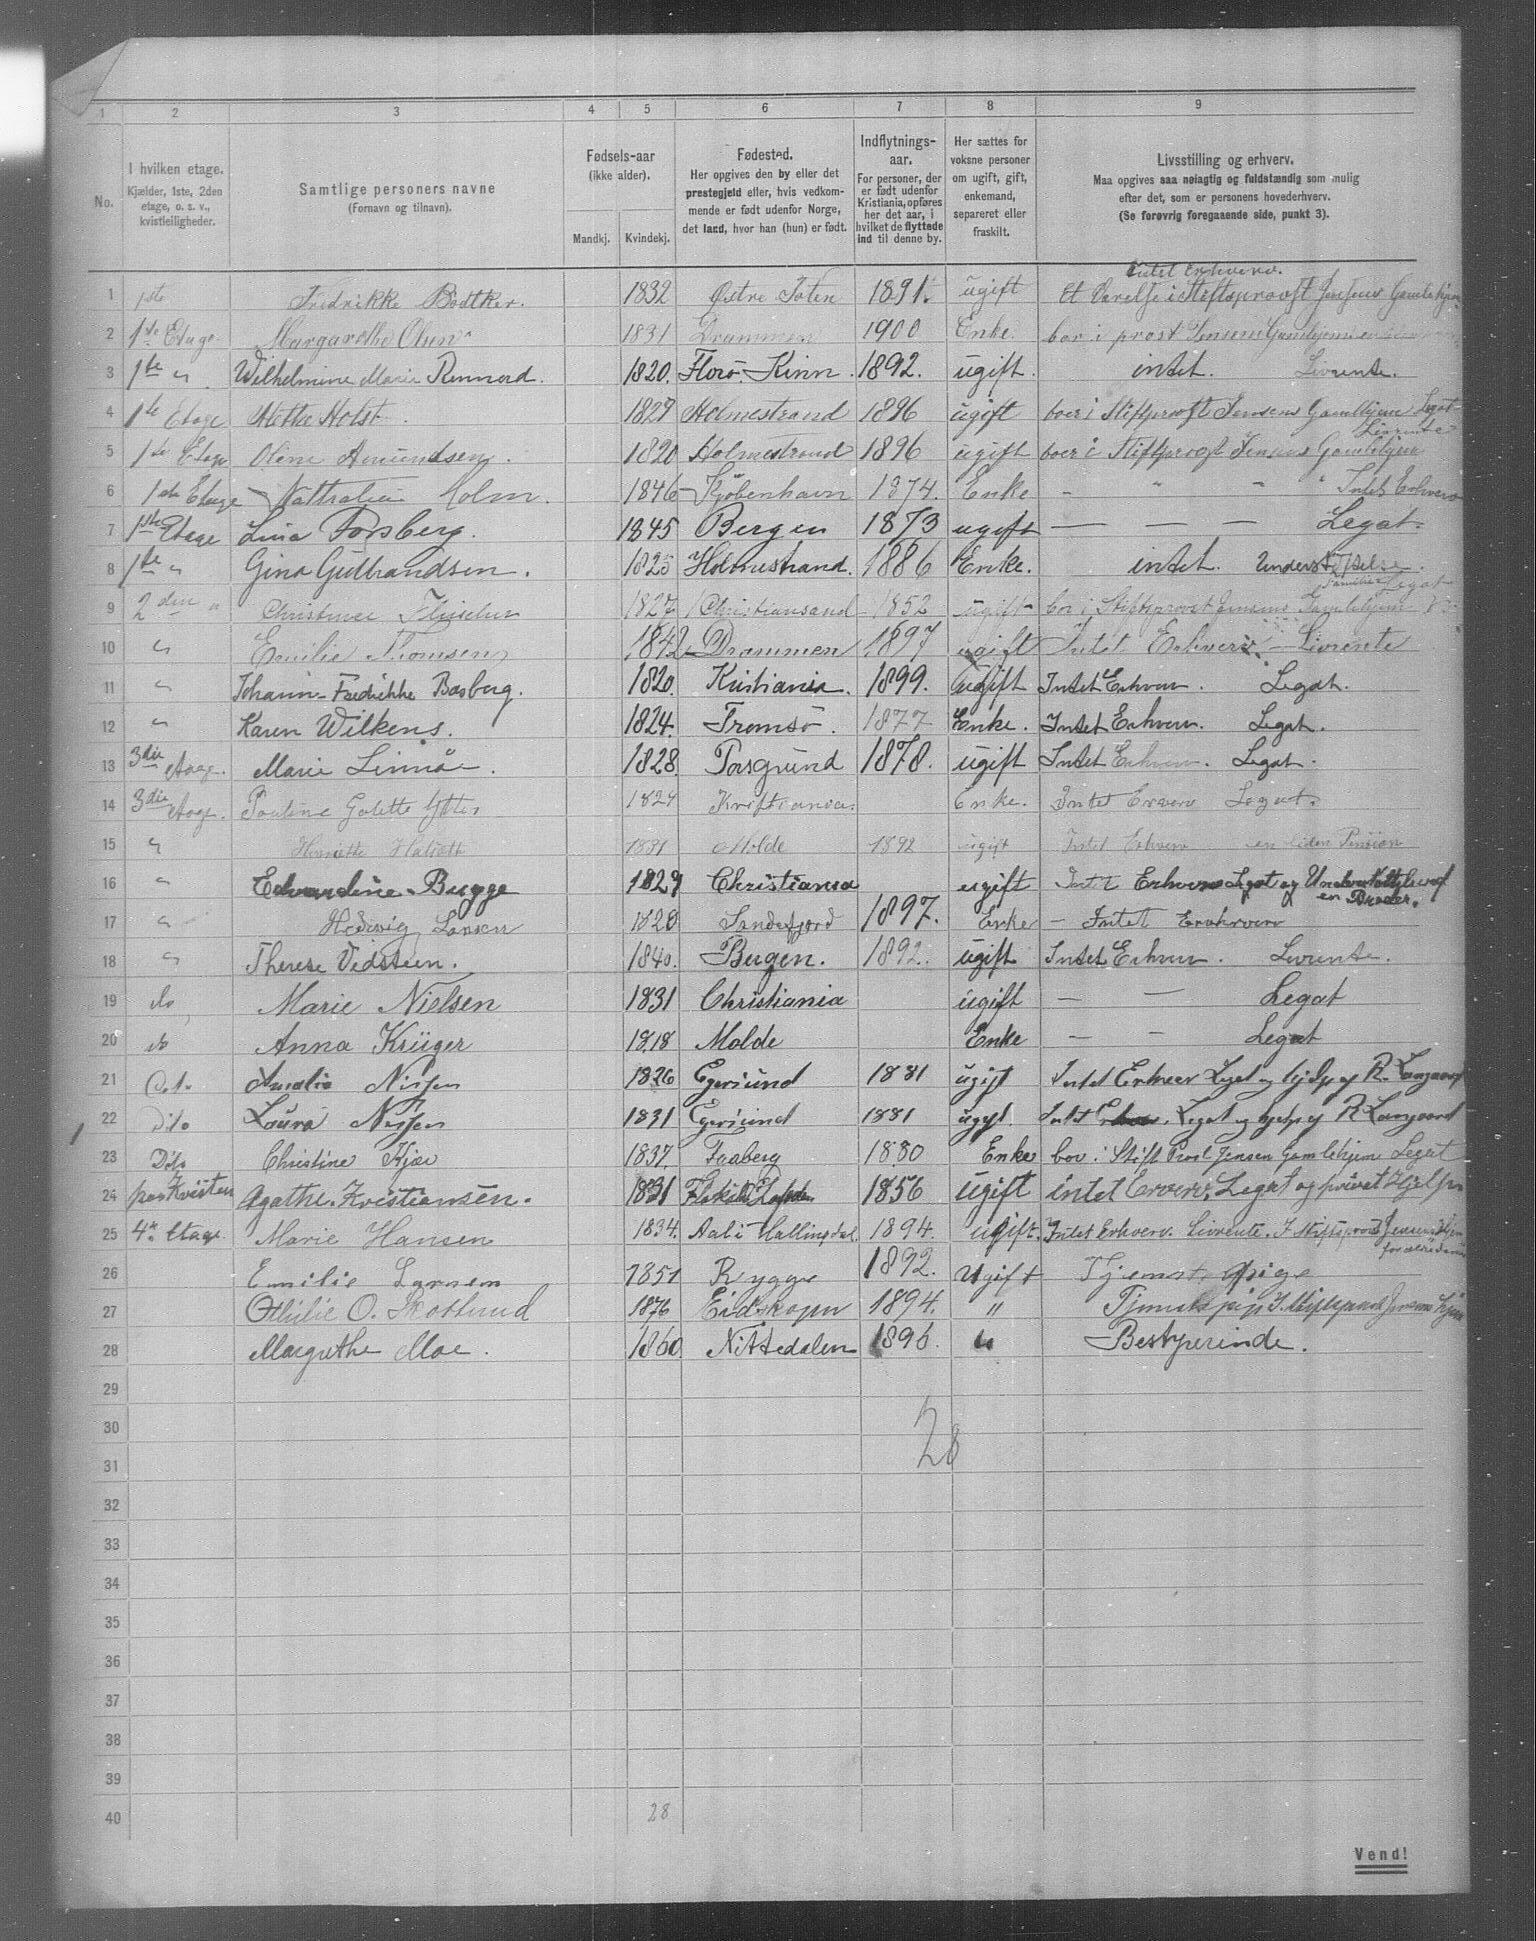 1 2 3 4 5 6 7 8 9
No.
I hvilken etage.
Kjælder, 1ste, 2den
etage, o. s. v.,
kvistleiligheder.
Samtlige personers navne
(Fornavn og tilnavn).
Fødsels-aar
(ikke alder).
Mandkj. Kvindekj.
Fødested.
Her opgives den by eller det
prestegjeld eller, hvis vedkom-
mende er født udenfor Norge,
det land, hvor han (hun) er født.
Indflytnings-
aar.
For personer, der
er født udenfor
Kristiania, opføres
her det aar, i
hvilket de flyttede
ind til denne by.
Her sættes for
voksne personer
om ugift, gift,
enkemand,
separeret eller
fraskilt.
Livsstilling og erhverv.
Maa opgives saa nøiagtig og fuldstændig som mulig
efter det, som er personens hovederhverv.
(Se forøvrig foregaaende side, punkt 3).
Intet Erhverv.
1 1ste Fredrikke Bødtker. 1832 Østre Toten 1891. ugift et Værelse i Stiftsprovst Jensens Gamlehjem
2 1ste Etage Margarethe Olsen 1831 Drammen 1900 Enke. bor i prost Jensens Gamlehjem
3 1ste " Wilhelmine Marie Rennord. 1820. Florø. Kinn. 1892. ugift. intet. Livrente.
4 1ste Etage Mette Holst 1827 Holmestrand 1896 ugift boer i Stiftprovst Jensens Gamlehjem Legat
Livrente
5 1ste Etage Oline Amundsen. 1820 Holmestrand 1896 ugift boer i Stiftprovst Jensens Gamlehjem
6 1ste Etage Nathalia Holm. 1846 Kjøbenhavn 1874. Enke - " " " Intet Erhverv
7 1ste Etage Lina Forsberg. 1845 Bergen 1873 ugift — — — Legat.
8 1ste " Gina Gulbrandsen. 1825 Holmestrand. 1886 Enke. intet. Understøttelse.
Familie Legat
9 2den " Christence Fleischer 1827 Christiansand 1852 ugift bor i Stiftsprovst Jensens Gamlehjem
10 " Emilie Thomsen 1842 Drammen 1897 ugift Intet Erhverv - Livrente
11 " Johanne Fredrikke Basberg. 1820. Kristiania. 1899. ugift Intet Erhverv. Legat.
12 " Karen Wilkens. 1824. Tromsø. 1877 Enke. Intet Erhverv. Legat.
13 3die Etage. Marie Linnå. 1828. Porsgrund 1878. ugift Intet Erhverv. Legat.
14 3die Etage. Pauline Galette 1824 Kristiania. Enke. Intet Erverv Legat.
15 " Henriette 1831 Molde 1892 ugift Intet Erhverv en liden Pension
16 " Edvardine Bugge 1829 Christiania ugift Intet Erhverv Legat og Understøttelse af
en Broder.
17 " Hedevig Larsen 1820 Sandefjord 1897. Enke - Intet Erehverv
18 " Therese Vidsteen. 1840. Bergen. 1892. ugift Intet Erhverv. Livrente.
19 do Marie Nielsen 1831 Christiania ugift — — Legat
20 do Anna Krüger 1818 Molde Enke - - Legat
21 Dito Amalia Nissen 1826 Egersund 1881 ugift Intet Erhverv Legat og hjelp af R. Langaard
22 Dito Laura Nissen 1831 Egersund 1881 ugift. Intet Erhverv. Legat og hjelp af R Langaard
23 Dito Christine Kjær 1837. Faaberg 1880 Enke bor i Stift Prost Jensen Gamlehjem Legat
24 paa Kvisten Agathe Kristiansen. 1831 1856 ugift intet Erverv. Legat og privat Hjelp
25 4de Etage. Marie Hansen 1834. Aal i Hallingdal. 1894. ugift. Intet Erhverv. Livrente. I Stiftsprovst Jensens Hjem
for ældre Damer
26 Emilie Larsen 1851 Rygge 1892. Ugift Tjenestepige
27 Othilie O. Skotlund 1876 Eidskogen 1894. " Tjenestepige I Stiftsprovst Jensens Hjem
28 Margrethe Moe. 1860. Nittedalen 1896. " Bestyrerinde.
29
30
28
31
32
33
34
35
36
37
38
39
40 28
Vend!